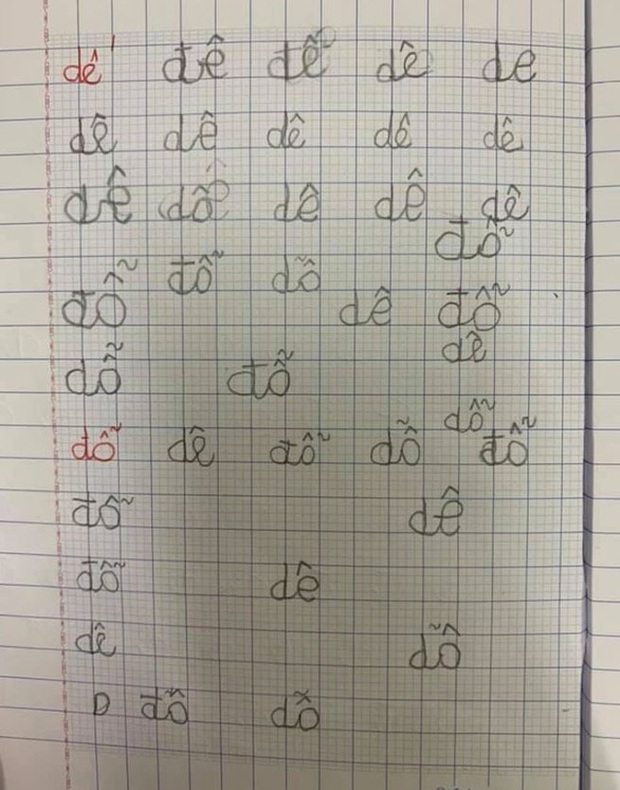 dê đê dễ dê de
dê dê dê dê dê
dê dỗ dê dê dê
đỗ
đỗ dỗ
đỗ dê đỗ
dê
dỗ đỗ
dỗ
đỗ dê đỗ dỗ đỗ
đỗ dê
đỗ dê
dê dỗ
D đỗ dỗ